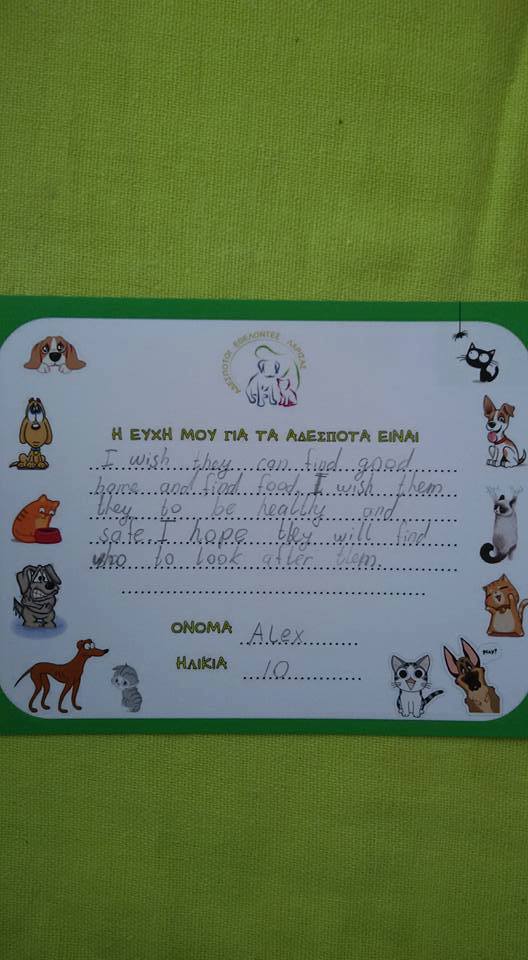 ΑΔΕΣΠΟΤΟΙ ΕΘΕΛΟΝΤΕΣ ΛΑΡΙΣΑΣ
Η ΕΥΧΗ ΜΟΥ ΓΙΑ ΤΑ ΑΔΕΣΠΟΤΑ ΕΙΝΑΙ
I wish they can find good
home and find food. I wish them
they to be healthy and
safe. I hope they will find
who to look after them.
ΟΝΟΜΑ Alex
ΗΛΙΚΙΑ 10
PLAY?